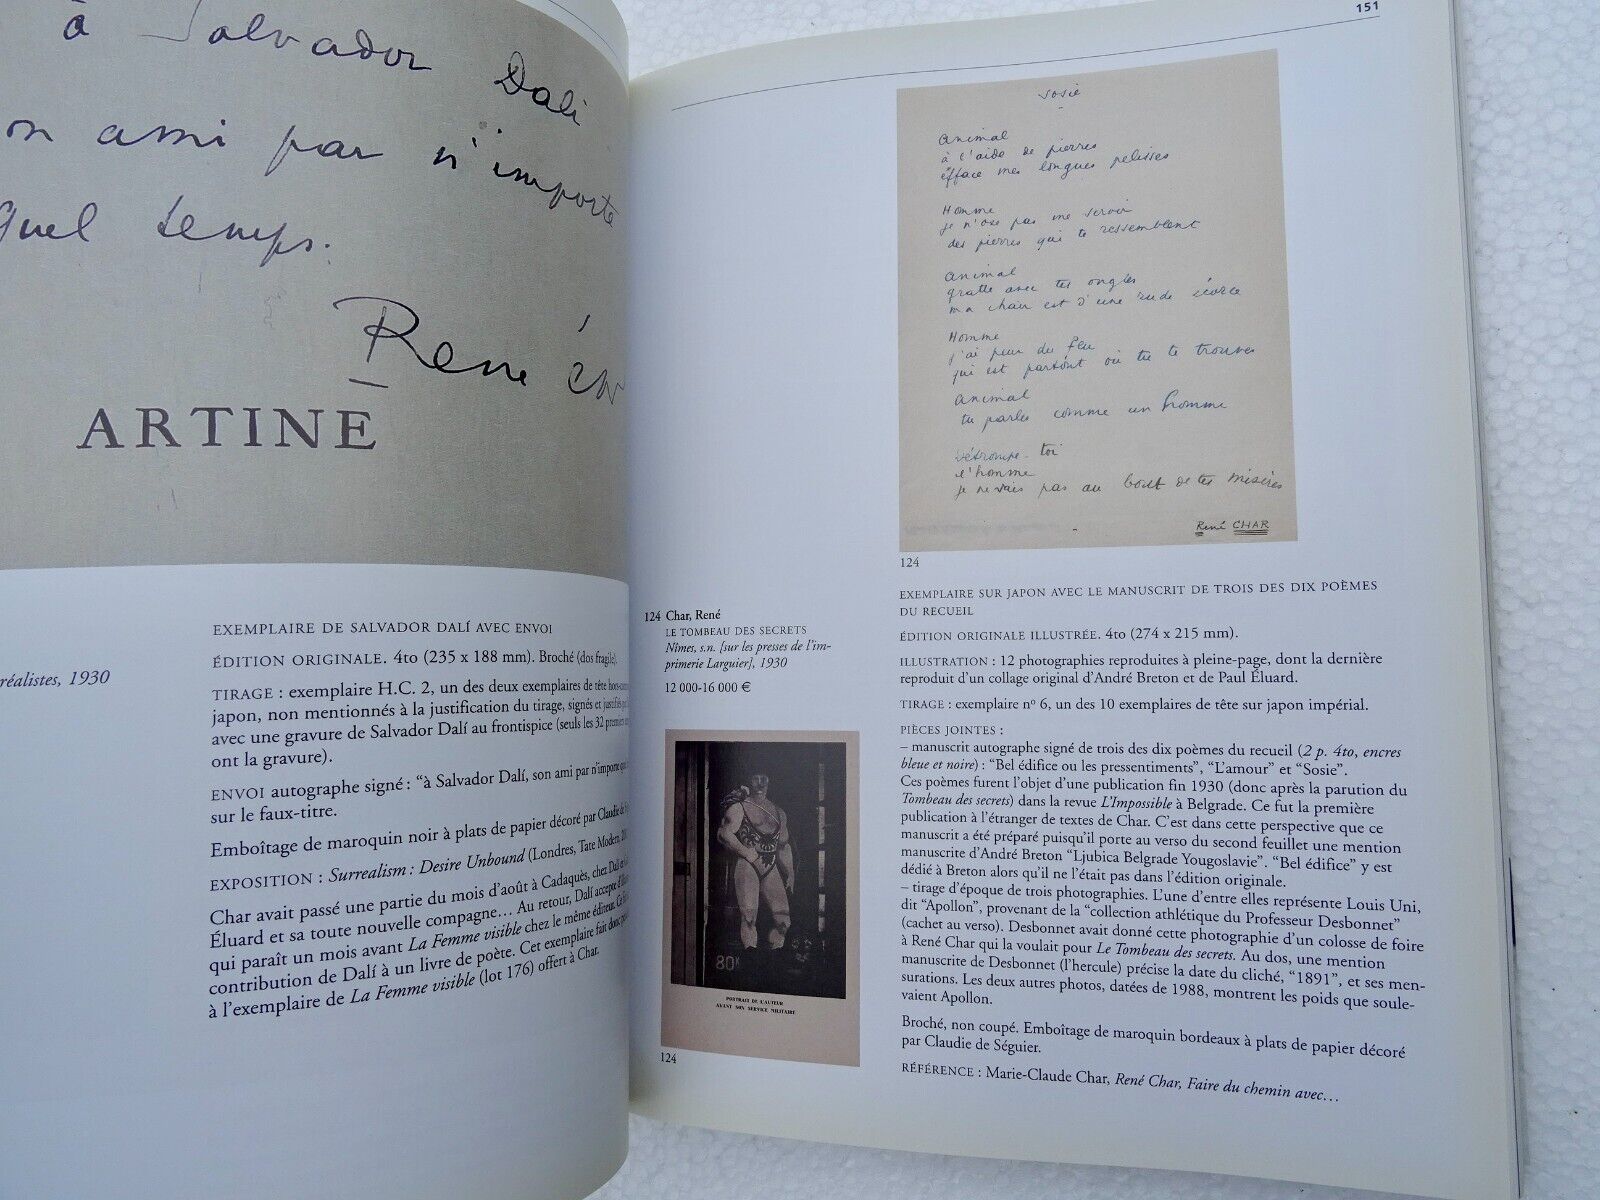 à Salvador Dali
on ami par n'importe
quel temps.
René Cha
ARTINE
réalistes, 1930
EXEMPLAIRE DE SALVADOR DALÍ AVEC ENVOI
ÉDITION ORIGINALE. 4to (235 x 188 mm). Broché (dos fragile).
TIRAGE : exemplaire H.C. 2, un des deux exemplaires de tête hors-
japon, non mentionnés à la justification du tirage, signés et justifiés
avec une gravure de Salvador Dalí au frontispice (seuls les 32 premier
ont la gravure).
ENVOI autographe signé : “à Salvador Dalí, son ami par n'importe
sur le faux-titre.
Emboîtage de maroquin noir à plats de papier décoré par Claudie de
EXPOSITION : Surrealism : Desire Unbound (Londres, Tate Modern,
Char avait passé une partie du mois d'août à Cadaquès, chez Dalí et
Éluard et sa toute nouvelle compagne… Au retour, Dalí accepte
qui paraît un mois avant La Femme visible chez le même éditeur.
contribution de Dalí à un livre de poète. Cet exemplaire fait donc
à l'exemplaire de La Femme visible (lot 176) offert à Char.
151
Sosie
Animal
à l'aide de pierres
efface mes longues pelisses
Homme
je n'ose pas me servir
des pierres qui te ressemblent
Animal
gratte avec tes ongles
ma chair est d'une rude écorce
Homme
j'ai peur du feu
qui est partout où tu te trouves
Animal
tu parles comme un homme
Détrompe-toi
l'homme
je ne vais pas au bout de tes misères
René CHAR
124
124 Char, René
LE TOMBEAU DES SECRETS
Nîmes, s.n. [sur les presses de l'im-
primerie Larguier], 1930
12 000-16 000 €
80K
PORTRAIT DE L'AUTEUR
AVANT SON SERVICE MILITAIRE
124
EXEMPLAIRE SUR JAPON AVEC LE MANUSCRIT DE TROIS DES DIX POÈMES
DU RECUEIL
ÉDITION ORIGINALE ILLUSTRÉE. 4to (274 x 215 mm).
ILLUSTRATION : 12 photographies reproduites à pleine-page, dont la dernière
reproduit d'un collage original d'André Breton et de Paul Éluard.
TIRAGE : exemplaire nº 6, un des 10 exemplaires de tête sur japon impérial.
PIÈCES JOINTES :
– manuscrit autographe signé de trois des dix poèmes du recueil (2 p. 4to, encres
bleue et noire) : “Bel édifice ou les pressentiments”, “L'amour” et “Sosie”.
Ces poèmes furent l'objet d'une publication fin 1930 (donc après la parution du
Tombeau des secrets) dans la revue L'Impossible à Belgrade. Ce fut la première
publication à l'étranger de textes de Char. C'est dans cette perspective que ce
manuscrit a été préparé puisqu'il porte au verso du second feuillet une mention
manuscrite d'André Breton “Ljubica Belgrade Yougoslavie”. “Bel édifice” y est
dédié à Breton alors qu'il ne l'était pas dans l'édition originale.
– tirage d'époque de trois photographies. L'une d'entre elles représente Louis Uni,
dit “Apollon”, provenant de la “collection athlétique du Professeur Desbonnet”
(cachet au verso). Desbonnet avait donné cette photographie d'un colosse de foire
à René Char qui la voulait pour Le Tombeau des secrets. Au dos, une mention
manuscrite de Desbonnet (l'hercule) précise la date du cliché, “1891”, et ses men-
surations. Les deux autres photos, datées de 1988, montrent les poids que soule-
vaient Apollon.
Broché, non coupé. Emboîtage de maroquin bordeaux à plats de papier décoré
par Claudie de Séguier.
RÉFÉRENCE : Marie-Claude Char, René Char, Faire du chemin avec…